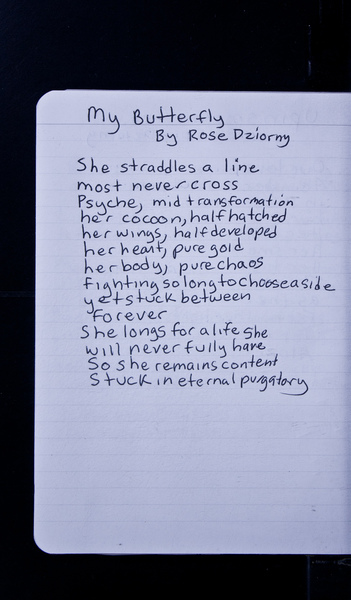 My Butterfly
By Rose Dziorny
She straddles a line
most never cross
Psyche, mid transformation
her cocoon, half hatched
her wings, half developed
her heart, pure gold
her body, pure chaos
fighting so long to choose a side
yet stuck between
forever
She longs for a life she
will never fully have
So she remains content
Stuck in eternal purgatory